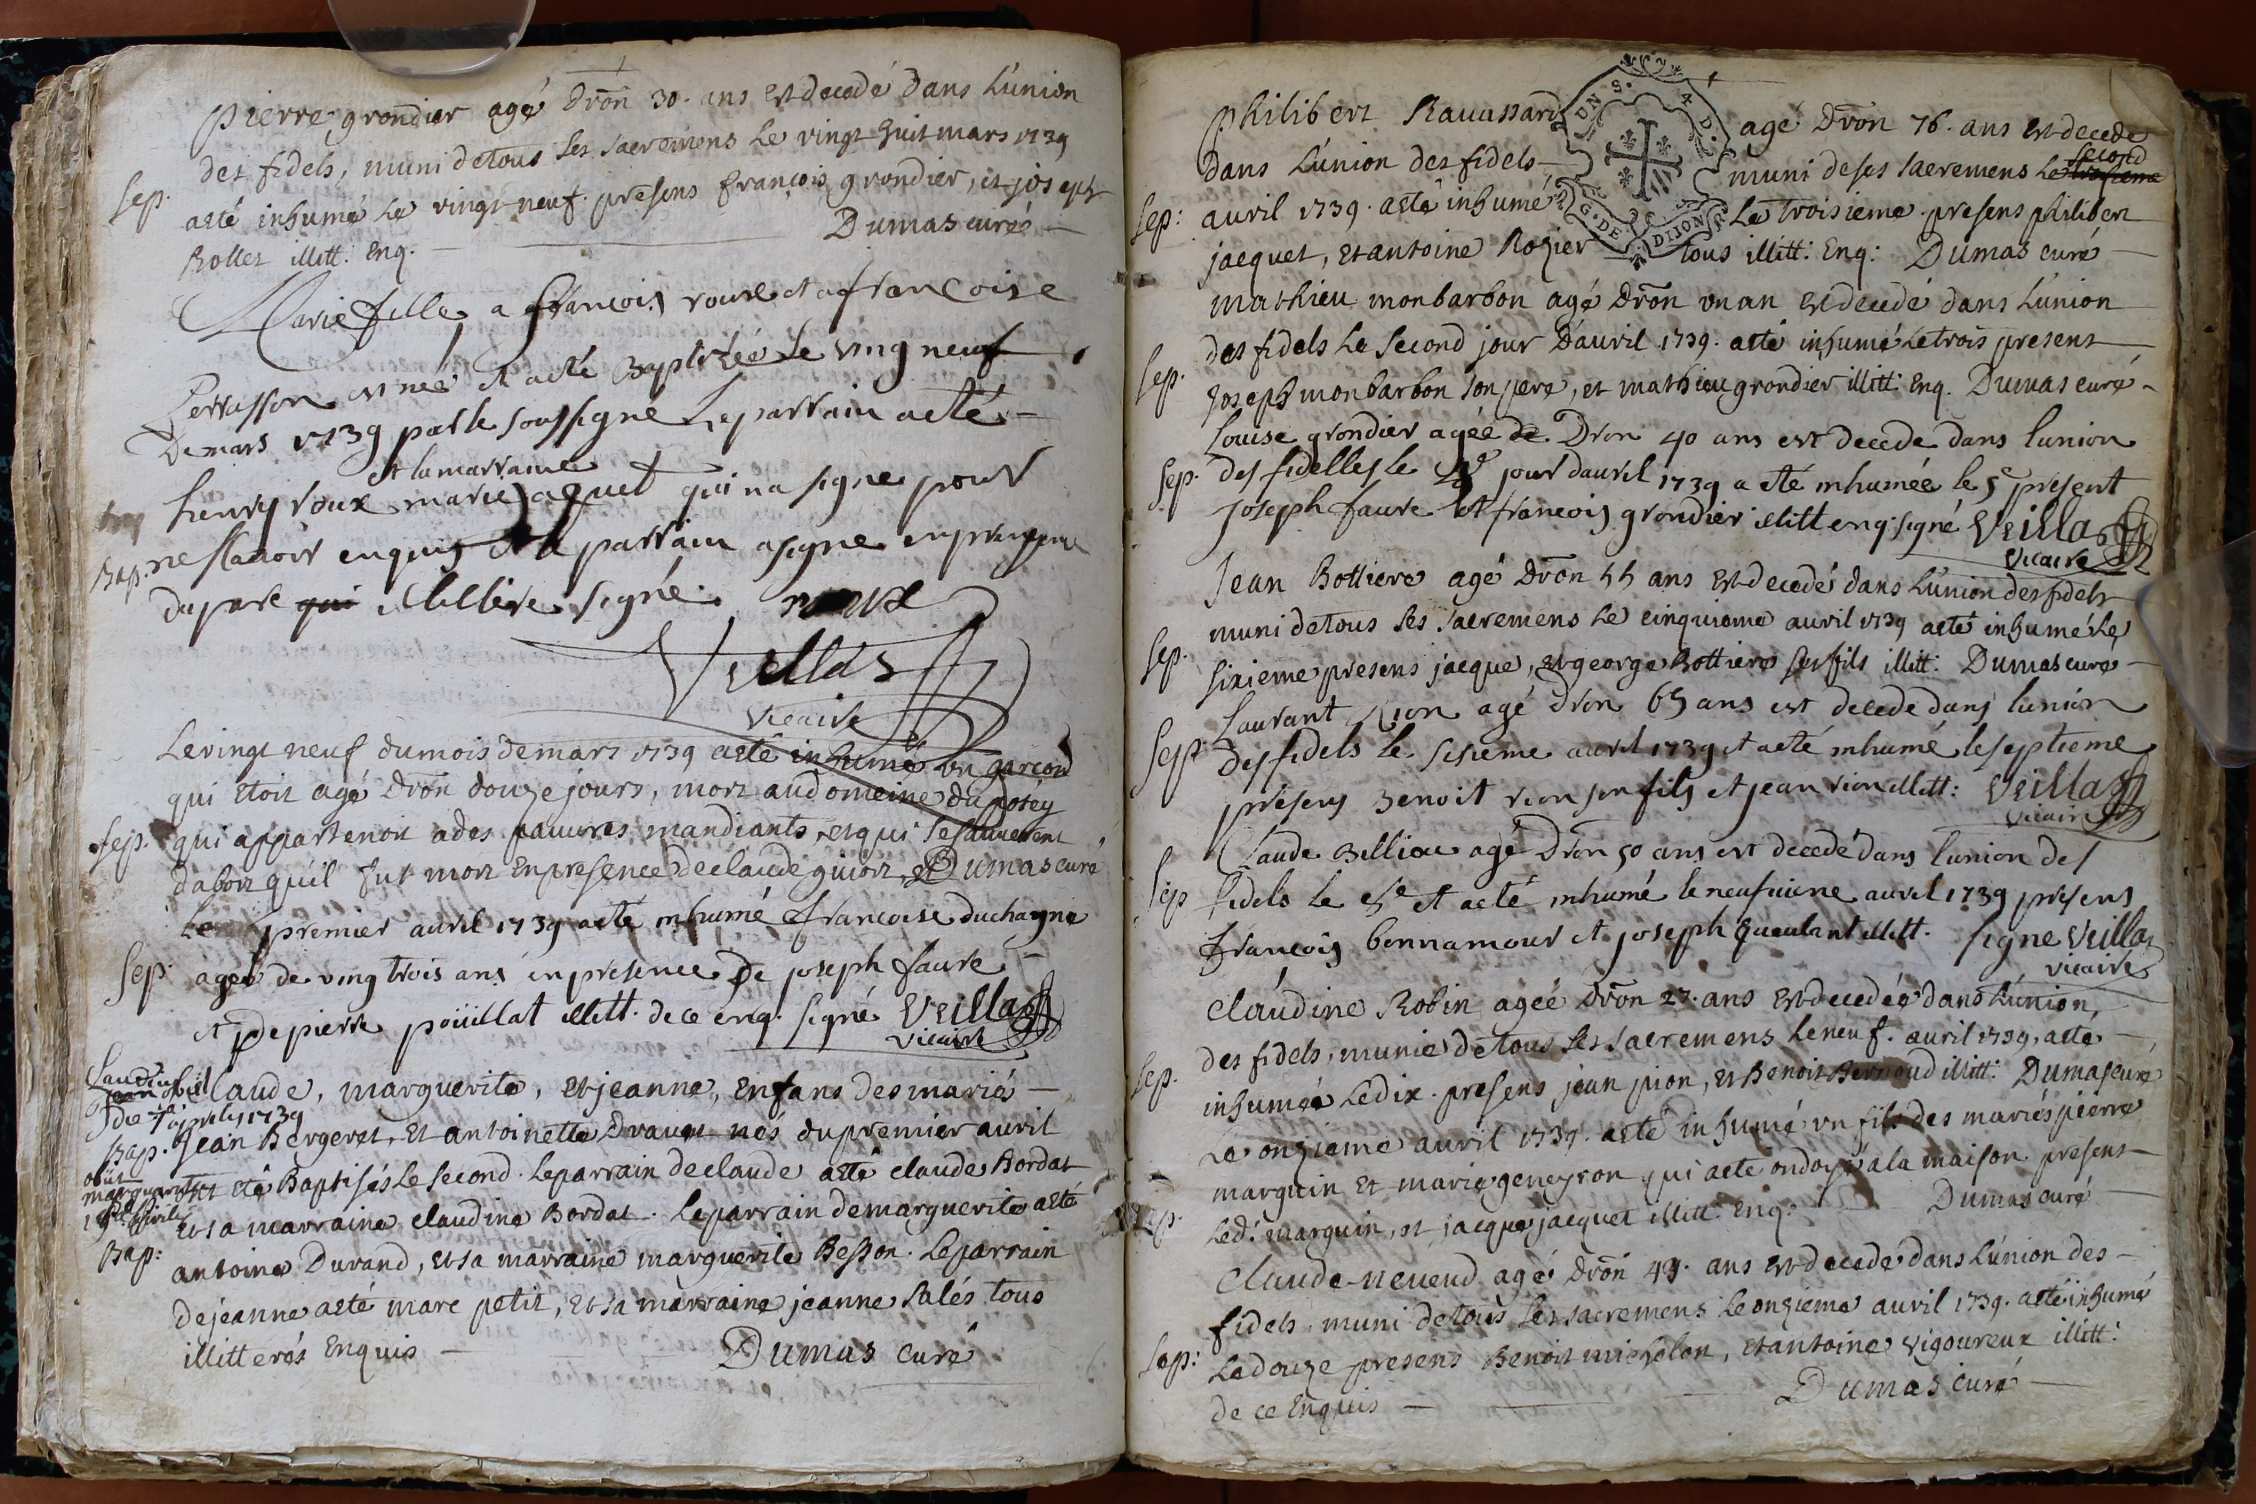 pierre grondier agé dron 30. ans est decedé dans l'union
des fidels, muni de tous ses sacremens le vingt huit mars 1739
sep. a eté inhumé le vingt neuf. presens françois grondier, et joseph
Rollet illitt. enq. Dumas curé
Marie fille a françois roux et a francoise
perrasson est née et a eté Baptizée le ving neuf
De mars 1739 par le soussigné Le parrain a eté
et la marraine
henry roux marie jaquet qui na signe pour
Bap. ne scavoir enquis et le parrain a signe en presence
du pere qui illitere signé. roux
Veillas
vicaire
Le vingt neuf du mois de mars 1739 a eté inhumé un garcon
qui etoit agé dron douze jours, mort au domeine du
sep. qui appartenoit a des pauvres mandiants, et qui se sauverent
dabort qu'il fut mort en presence de claude guiot, et Dumas curé
Le premier avril 1739 a eté inhumé francoise duchayne
sep. ageé de ving trois ans en presence de joseph faure
et de pierre poüillat illitt. de ce enq. signé Veillas
vicaire
Claudius obiit
die 7a aprilis 1739
Claude, marguerite, et jeanne, enfans des mariés
Bap. jean Bergeret, et antoinette Dravet nés du premier avril
obiit
margaarita
ont eté Baptisés le second. le parrain de claude a eté claude Bordat
et sa marraine claudine Bordat. le parrain de marguerite a eté
Bap: antoine Durand, et sa marraine marguerite Besson. le parrain
de jeanne a eté marc petit, et sa marraine jeanne salés tous
illitterés enquis Dumas curé
philibert Ravassard agé dron 76. ans est decedé
second
dans l'union des fidels muni de ses sacremens le troisieme
sep: avril 1739. a eté inhumé le troisieme. presens philibert
jacquet, et antoine Rozier tous illitt: enq: Dumas curé
G. DE DIJON
mathieu monbarbon agé dron un an est decedé dans l'union
des fidels le second jour d'avril 1739. a eté inhumé le trois present
sep. joseph monbarbon son pere, et mathieu grondier illitt: enq. Dumas curé
Louise grondier agée de Dron 40 ans est decede dans lunion
sep. des fidelles le 4e jour davril 1739 a eté inhumée le 5e present
joseph faure et francois grondier illitt enq. signé Veillas
vicaire
Jean Bottiere agé dron 55 ans est decedé dans l'union des fidels
muni de tous ses sacremens le cinquieme avril 1739 a eté inhumé le
sep. sixieme presens jacque, et george Bottiere ses fils illitt: Dumas curé
Laurant rion agé dron 65 ans est decede dans lunion
sep. des fidels le sisieme avril 1739 et a eté inhumé le septieme
presens Benoit rion son fils et jean rion illitt: Veillas
vicaire
Claude Billiou agé Dron 50 ans est decedé dans lunion des
sep fidels le 8e et a eté inhumé le neufvieme avril 1739 presens
francois bonnamour et joseph Gueulant illitt. signe Veillas
vicaire
claudine Robin ageé dron 27. ans est decedée dans l'union
des fidels, munie de tous ses sacremens le neuf. avril 1739, a eté
sep. inhumée le dix. presens jean pion, et Benoit Bernoud illitt: Dumas curé
Le onzieme avril 1739. a eté inhumé un fils des mariés pierre
marguin et marie geneyron qui a eté ondoyé a la maison. presens
sep. led: marguin, et jacque jacquet illitt: enq: Dumas curé
claude neveud agé dron 43. ans est decedé dans l'union des
fidels. muni de tous ses sacremens le onzieme avril 1739. a eté inhumé
sep: le douze presens Benoit michelon, et antoine vigoureux illitt:
de ce enquis Dumas curé